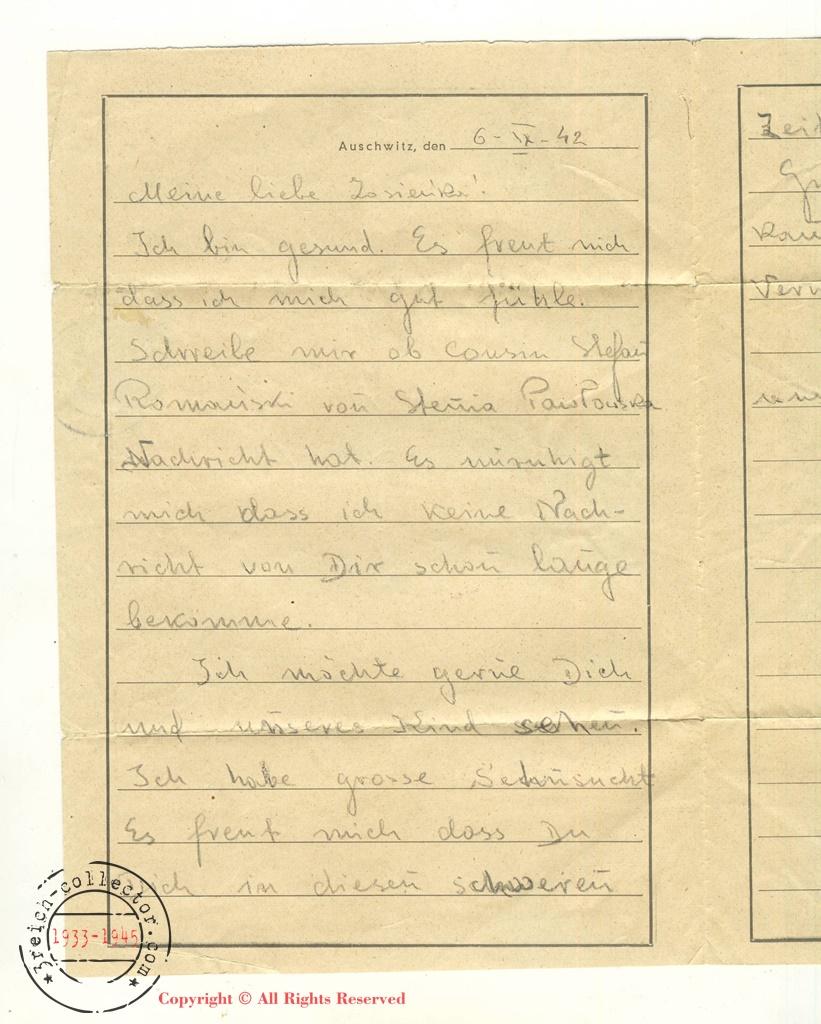 Auschwitz, den 6-IX-42
Meine liebe Zosieńka!
Ich bin gesund. Es freut mich
dass ich mich gut fühle.
Schreibe mir ob Cousin Stefan
Romański von Stenia Pawłowska
Nachricht hat. Es unruhigt
mich dass ich keine Nach-
richt von Dir schon lange
bekomme.
Ich möchte gerne Dich
und unseres Kind sehen.
Ich habe grosse Sehnsucht
Es freut mich dass Du
Dich in diesen schweren
Zeit
3reich-collector.com
1933-1945
Copyright © All Rights Reserved